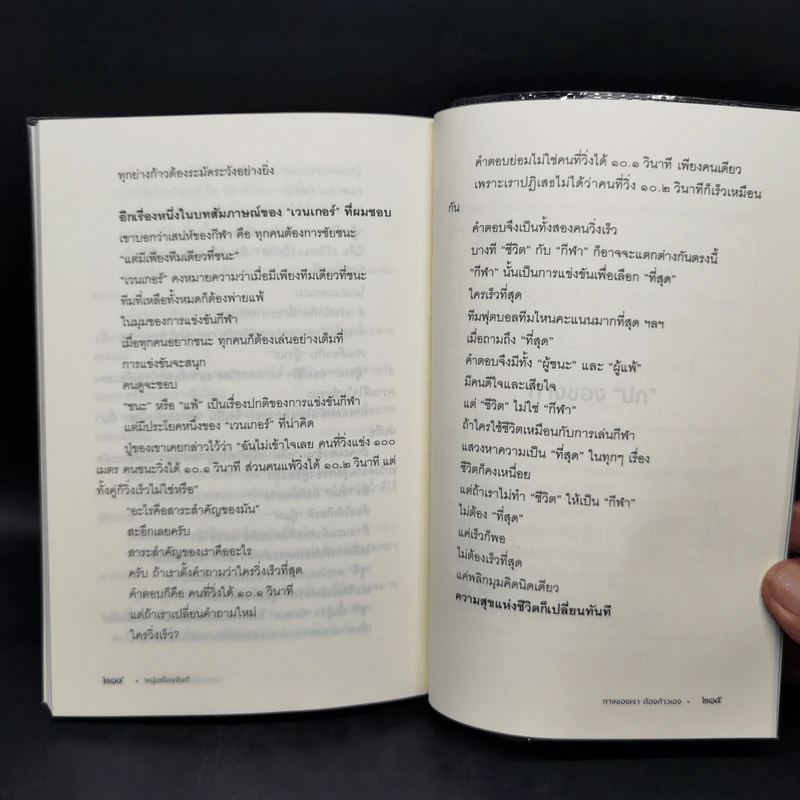 ทุกย่างก้าวต้องระมัดระวังอย่างยิ่ง
อีกเรื่องหนึ่งในบทสัมภาษณ์ของ “เวนเกอร์” ที่ผมชอบ
เขาบอกว่าเสน่ห์ของกีฬา คือ ทุกคนต้องการชัยชนะ
“แต่มีเพียงทีมเดียวที่ชนะ”
“เวนเกอร์” คงหมายความว่าเมื่อมีเพียงทีมเดียวที่ชนะ
ทีมที่เหลือทั้งหมดก็ต้องพ่ายแพ้
ในมุมของการแข่งขันกีฬา
เมื่อทุกคนอยากชนะ ทุกคนก็ต้องเล่นอย่างเต็มที่
การแข่งขันจะสนุก
คนดูจะชอบ
“ชนะ” หรือ “แพ้” เป็นเรื่องปกติของการแข่งขันกีฬา
แต่มีประโยคหนึ่งของ “เวนเกอร์” ที่น่าคิด
ปู่ของเขาเคยกล่าวไว้ว่า “ฉันไม่เข้าใจเลย คนที่วิ่งแข่ง ๑๐๐
เมตร คนชนะวิ่งได้ ๑๐.๑ วินาที ส่วนคนแพ้วิ่งได้ ๑๐.๒ วินาที แต่
ทั้งคู่ก็วิ่งเร็วไม่ใช่หรือ”
“อะไรคือสาระสำคัญของมัน”
สะอึกเลยครับ
สาระสำคัญของเราคืออะไร
ครับ ถ้าเราตั้งคำถามว่าใครวิ่งเร็วที่สุด
คำตอบก็คือ คนที่วิ่งได้ ๑๐.๑ วินาที
แต่ถ้าเราเปลี่ยนคำถามใหม่
ใครวิ่งเร็ว?
๒๑๔ • หนุ่มเมืองจันท์
คำตอบย่อมไม่ใช่คนที่วิ่งได้ ๑๐.๑ วินาที เพียงคนเดียว
เพราะเราปฏิเสธไม่ได้ว่าคนที่วิ่ง ๑๐.๒ วินาทีก็เร็วเหมือน
กัน
คำตอบจึงเป็นทั้งสองคนวิ่งเร็ว
บางที “ชีวิต” กับ “กีฬา” ก็อาจจะแตกต่างกันตรงนี้
“กีฬา” นั้นเป็นการแข่งขันเพื่อเลือก “ที่สุด”
ใครเร็วที่สุด
ทีมฟุตบอลทีมไหนคะแนนมากที่สุด ฯลฯ
เมื่อถามถึง “ที่สุด”
คำตอบจึงมีทั้ง “ผู้ชนะ” และ “ผู้แพ้”
มีคนดีใจและเสียใจ
แต่ “ชีวิต” ไม่ใช่ “กีฬา”
ถ้าใครใช้ชีวิตเหมือนกับการเล่นกีฬา
แสวงหาความเป็น “ที่สุด” ในทุกๆ เรื่อง
ชีวิตก็คงเหนื่อย
แต่ถ้าเราไม่ทำ “ชีวิต” ให้เป็น “กีฬา”
ไม่ต้อง “ที่สุด”
แค่เร็วก็พอ
ไม่ต้องเร็วที่สุด
แค่พลิกมุมคิดนิดเดียว
ความสุขแห่งชีวิตก็เปลี่ยนทันที
ทางของเรา ต้องก้าวเอง • ๒๑๕